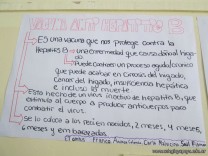 VACUNA ANTIHEPATITIS B
ES una vacuna que nos protege contra la
Hepatitis B una enfermedad que causa daño al higado
Puede contraer un proceso agudo, cronico
que puede acabar en Cirrosis del higado,
Cancer del higado, insuficiencia hepatica
e incluso la muerte
Esta hecha de virus inactivo de hepatitis B, que
estimula el cuerpo a producir anticuerpos para
combatir el virus.
Se le coloca a los recien nacidos, 2 meses, 4 meses,
6 meses y en
Franco